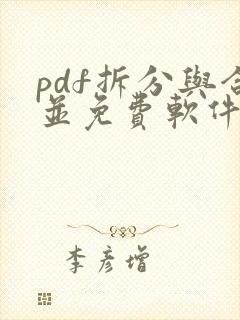 pdf拆分與合
並免費軟件
李彥增